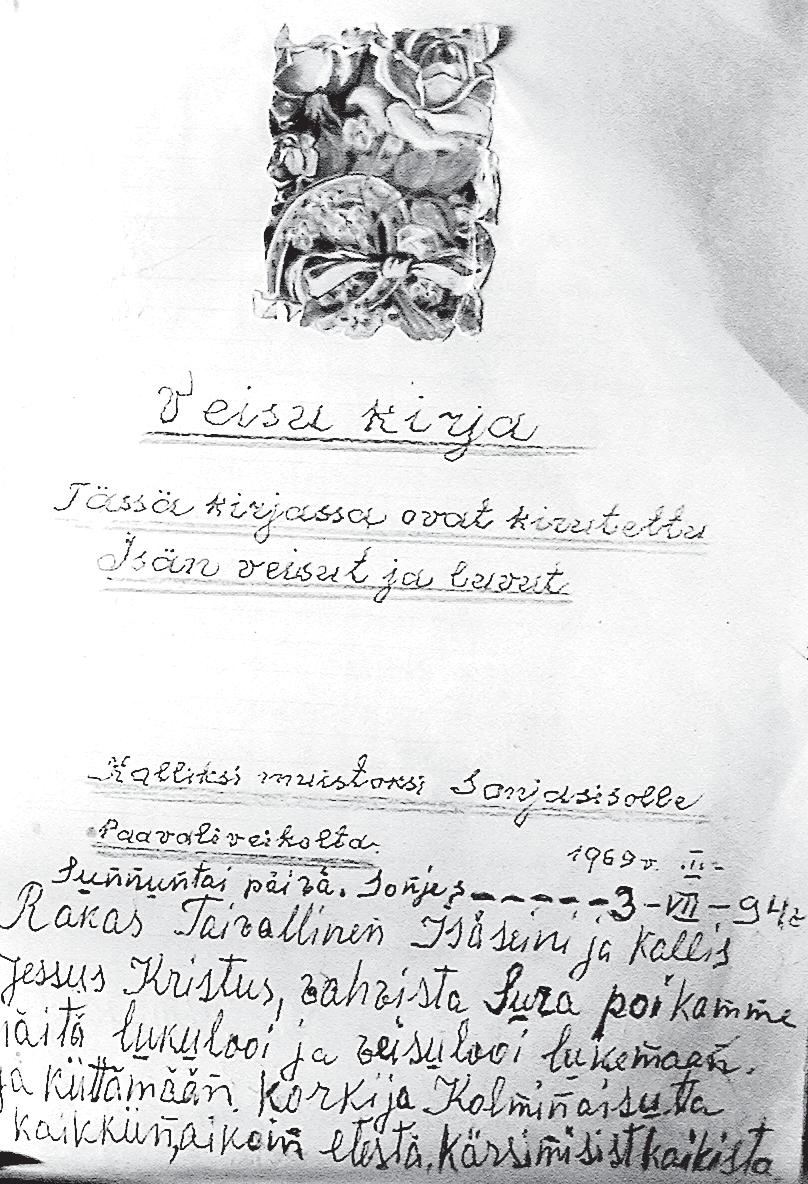 Veisu kirja
Tässä kirjassa ovat kirutettu
Isän veisut ja luvut
Kalliksi muistoksi Sonjasisolle
Paavaliveikolta
1969 v. III
Suññuñtai päivä. Soñje 3-VII-94
Rakas Taivallineñ Isäseiñi ja Kallis
Jessus Kristus, vahvista Sura poikamme
näitä lukulooi ja veisulooi lukemaañ.
ja kiittämääñ. Korkija Kolmiñaisuta
kaikkiiñ, aikoiñ etestä, kärsimisist kaikista